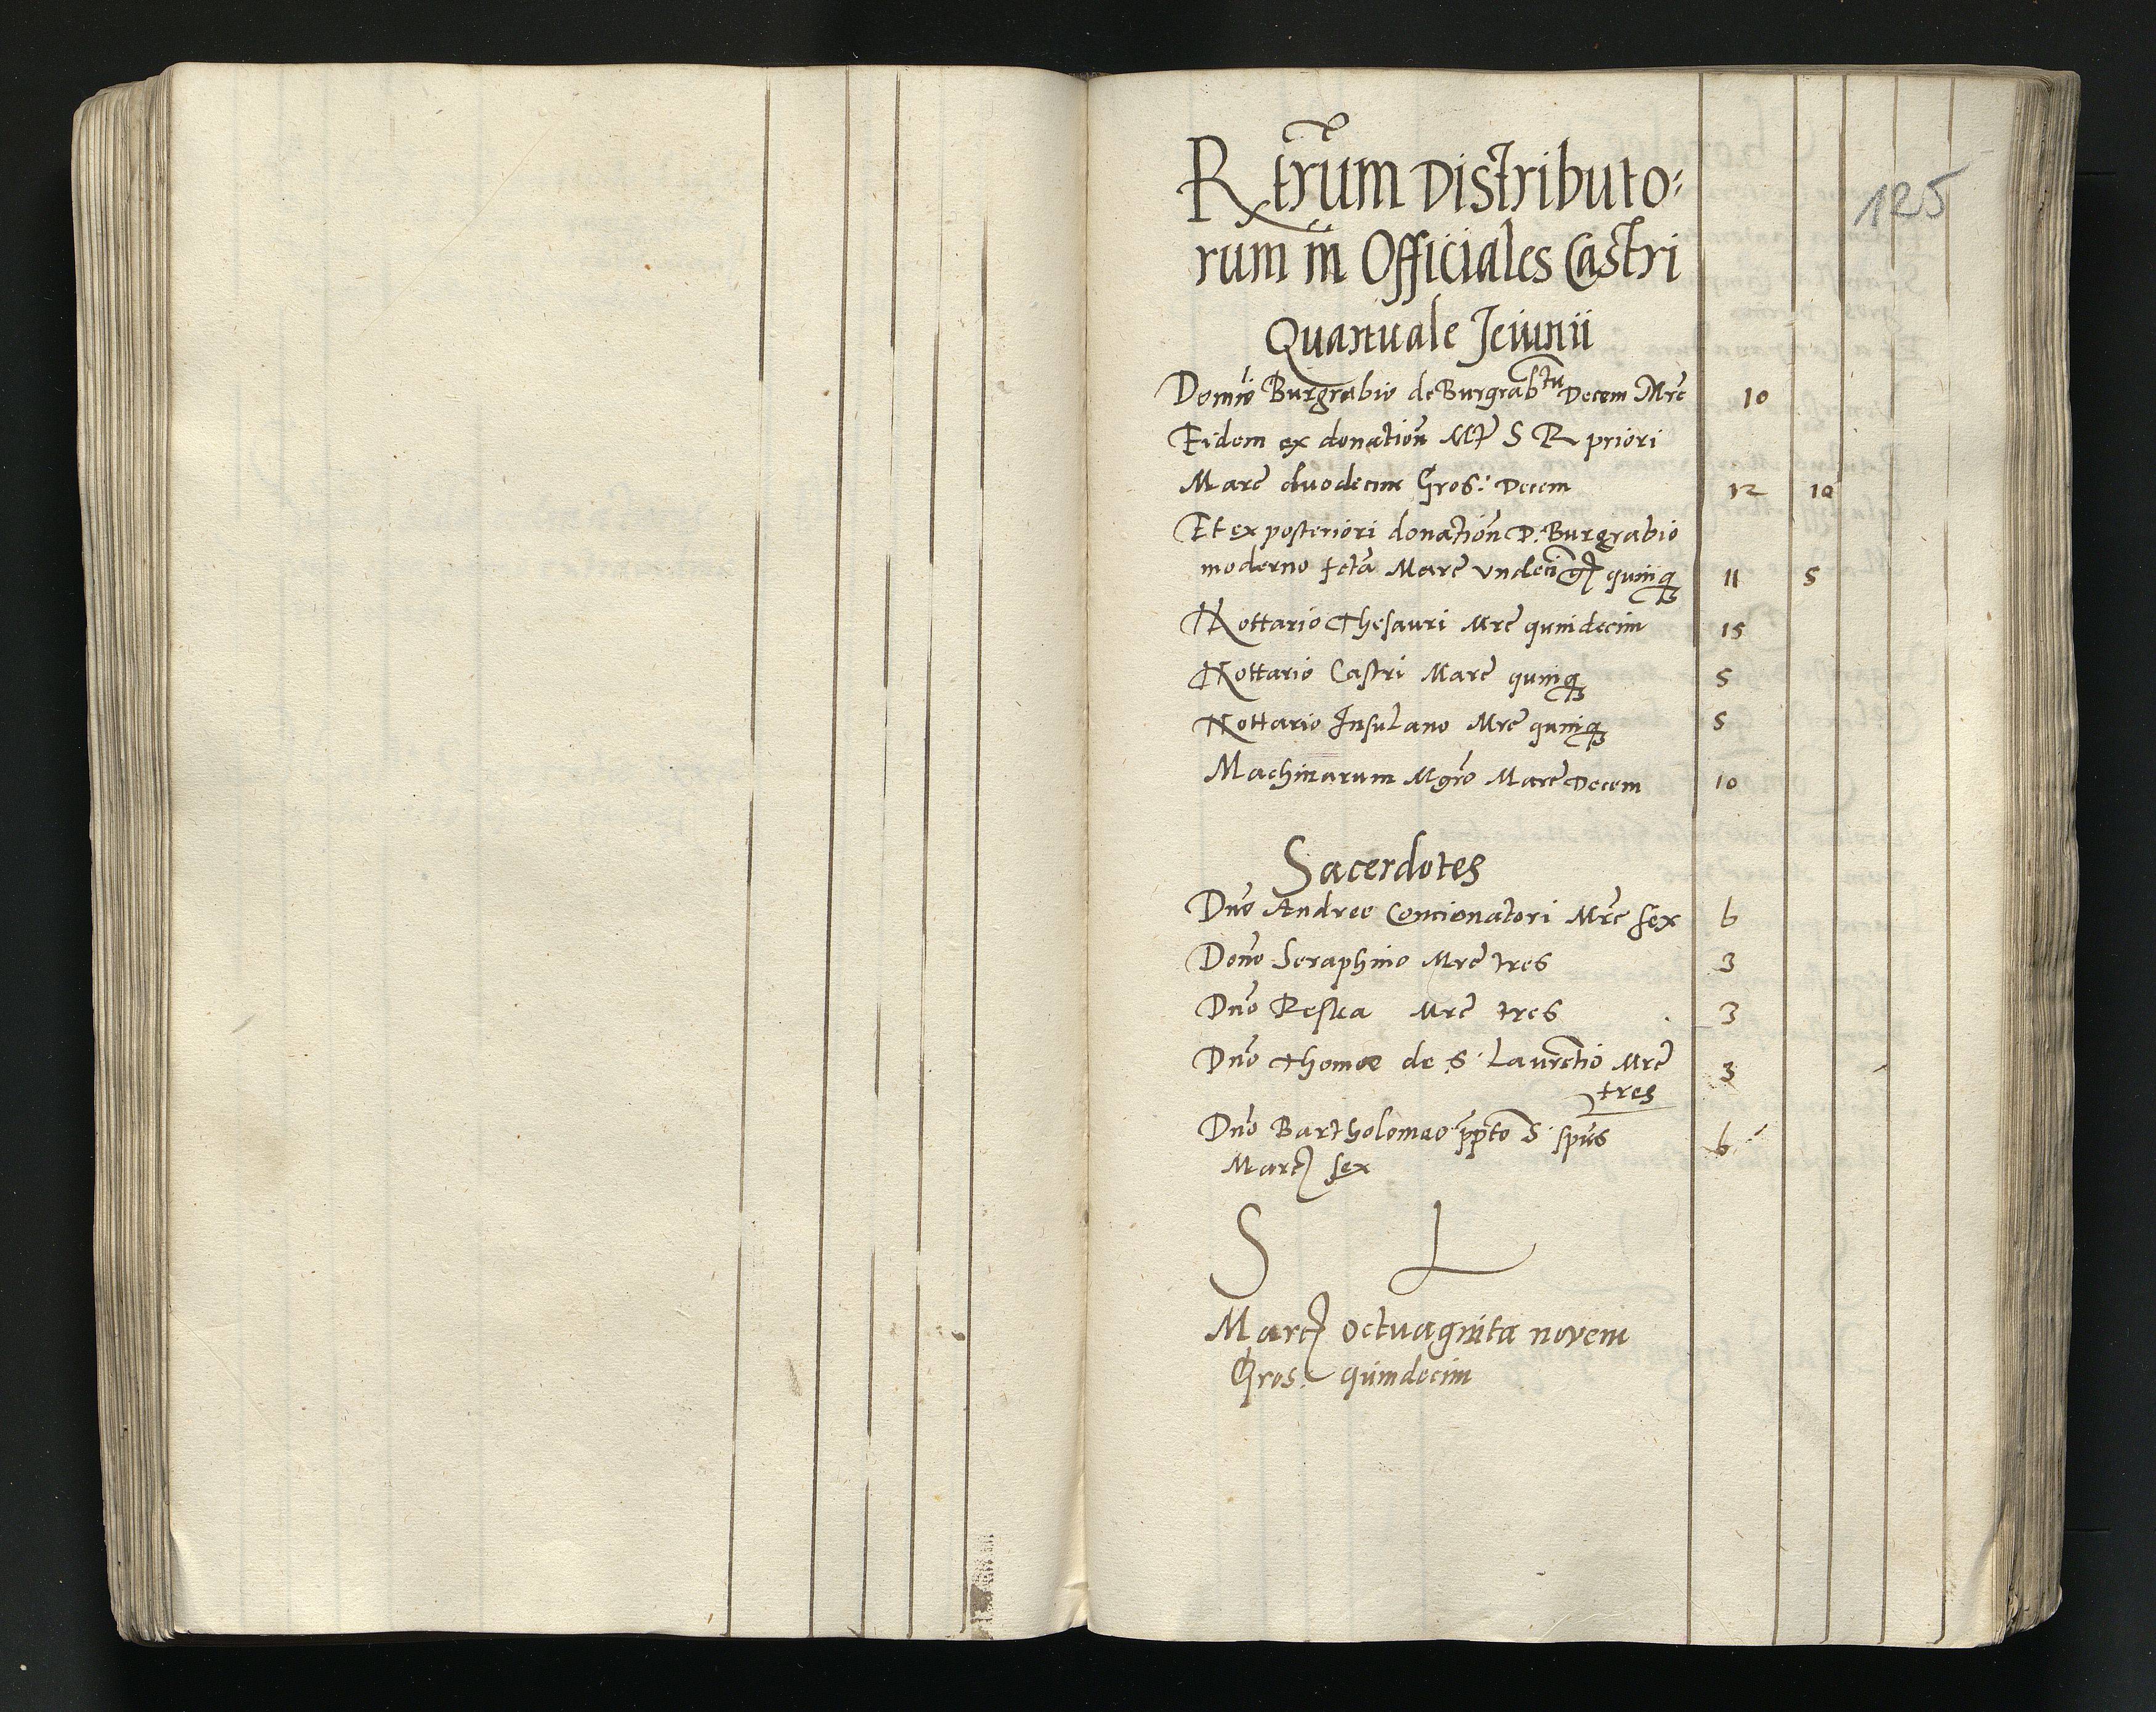 125
Rtrum Distributo:
rum in Officiales Castri
Quartuale Jeiunii
Domio Burgrabio de Burgrabtu Decem Mrc 10
Eidem ex donation Mtt S R priori
Marc duodecim Gros: Decem 12 10
Et ex posteriori donation D. Burgrabio
moderno fcta Marc undeci gs quinq 11 5
Nottario Thesauri Mrc quindecim 15
Nottario Castri Marc quinq 5
Nottario Insulano Mrc quinq 5
Machinarum Mgro Marc Decem 10
Sacerdotes
Dno Andree Concionatori Mrc sex 6
Domo Seraphino Mrc tres 3
Dno Reska Mrc tres 3
Dno Thomae de S. Laurentio Mrc 3
tres
Dno Bartholomeo ppto S. spus 6
Marc sex
S L
Marc octuaginta novem
Gros: quindecim